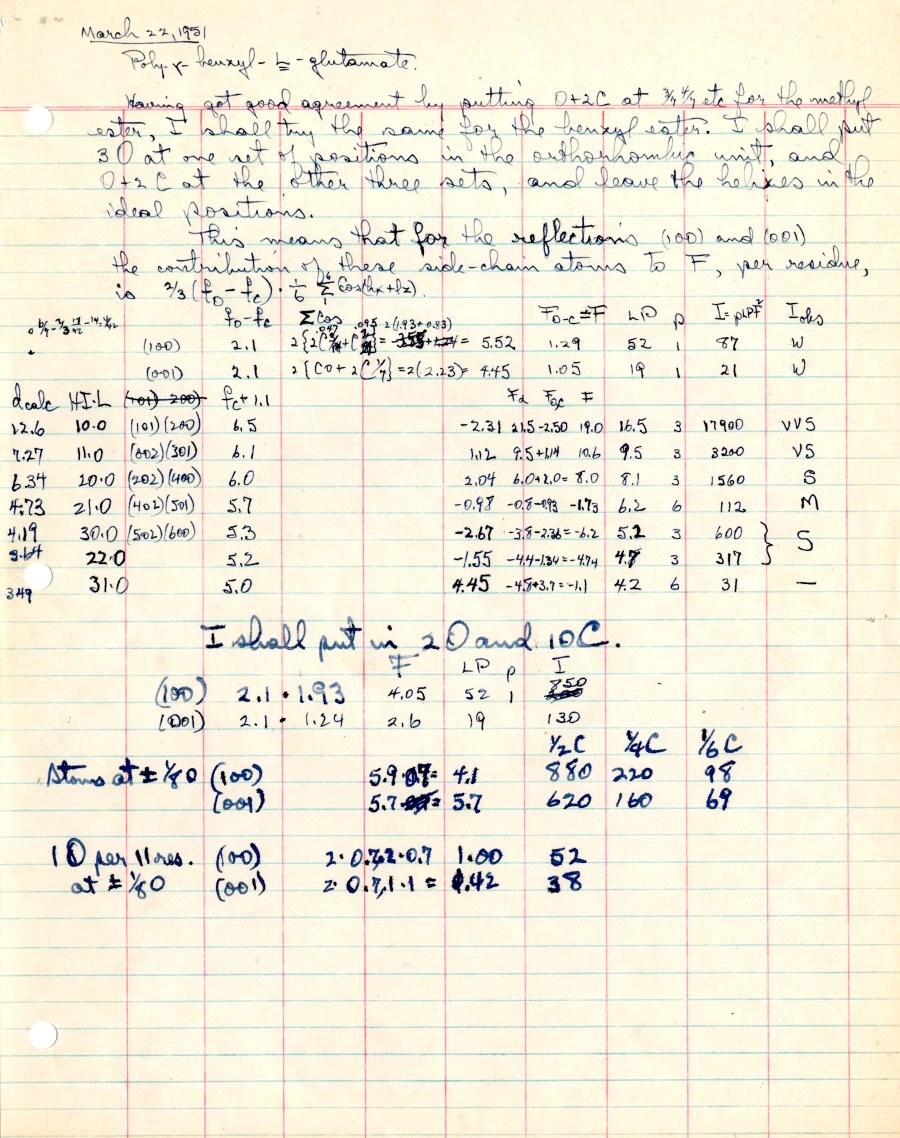 March 22, 1951
Poly-γ-benzyl-L-glutamate.
Having got good agreement by putting O+2C at 3/7 4/7 etc for the methyl
ester, I shall try the same for the benzyl ester. I shall put
3 O at one set of positions in the orthorhombic unit, and
O+2C at the other three sets, and leave the helixes in the
ideal positions.
This means that for the reflections (100) and (001)
the contribution of these side-chain atoms to F, per residue,
is 2/3 (fO - fC) · 1/6 Σ cos(hx+lz).
fO-fC Σ cos FO-C=F LP p I=pLPF² Iobs
(100) 2.1 = 5.52 1.29 52 1 87 W
(001) 2.1 2{C0 + 2C 1/7} = 2(2.23) = 4.45 1.05 19 1 21 W
dcalc HI·L (101) 200) fC + 1.1 Fα FOC F
12.6 10.0 (101)(200) 6.5 -2.31 21.5 -2.50 19.0 16.5 3 17900 VVS
7.27 11.0 (002)(301) 6.1 1.12 9.5+1.14 10.6 9.5 3 3200 VS
6.34 20.0 (202)(400) 6.0 2.04 6.0+2.0= 8.0 8.1 3 1560 S
4.73 21.0 (402)(501) 5.7 -0.98 -0.8-0.93 -1.73 6.2 6 112 M
4.19 30.0 (502)(600) 5.3 -2.67 -3.8-2.36=-6.2 5.2 3 600 } S
3.64 22.0 5.2 -1.55 -4.4-1.34=-4.74 4.7 3 317
3.49 31.0 5.0 4.45 -4.8+3.7=-1.1 4.2 6 31 —
I shall put in 2 O and 10C.
F LP p I
(100) 2.1 · 1.93 4.05 52 1 850
(001) 2.1 · 1.24 2.6 19 130
1/2C 1/4C 1/6C
Atoms at ± 1/80 (100) 5.9·0.7= 4.1 880 220 98
(001) 5.7 = 5.7 620 160 69
1 O per 11 res. (100) 2·0.72·0.7 1.00 52
at ± 1/80 (001) 2·0.7,1·1 = 1.42 38